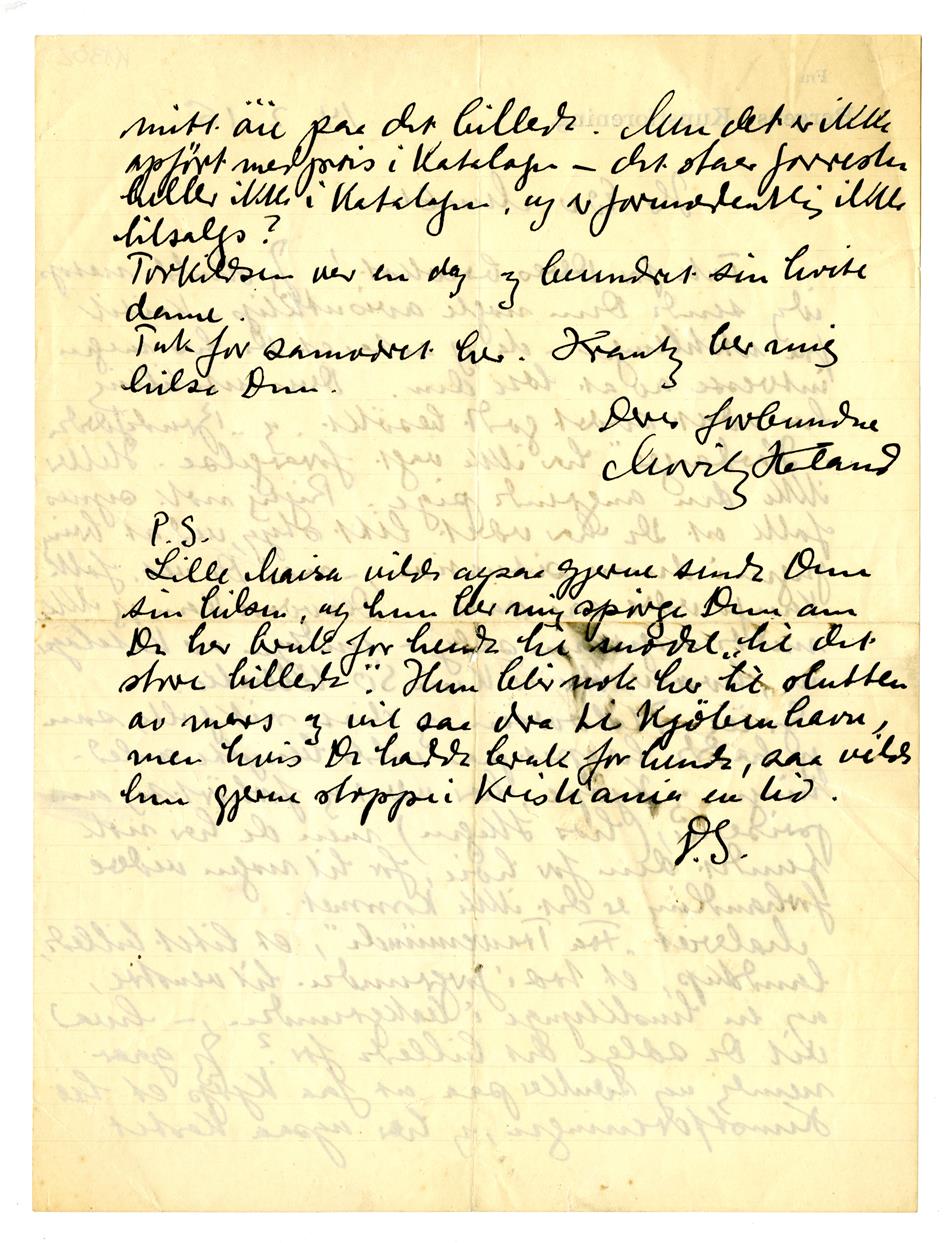 mitt öie paa det billede. Men det er ikke
opført med pris i Katalogen – det staar forresten
heller ikke i Katalogen, og er formodentlig ikke
tilsalgs?
Torkildsen var en dag og beundret sin hvite
dame.
Tak for samværet her. Krantz ber mig
hilse Dem.
Deres forbundne
P.S.
Lille Maisa vilde ogsaa gjerne sende Dem
sin hilsen, og hun ber mig spørge Dem om
De har bruk for hende til model „til det
store billede". Hun blir nok her til slutten
av mars og vil saa dra til Kjöbenhavn,
men hvis De hadde bruk for hende, saa vilde
hun gjerne stoppe i Kristiania en tid.
D.S.